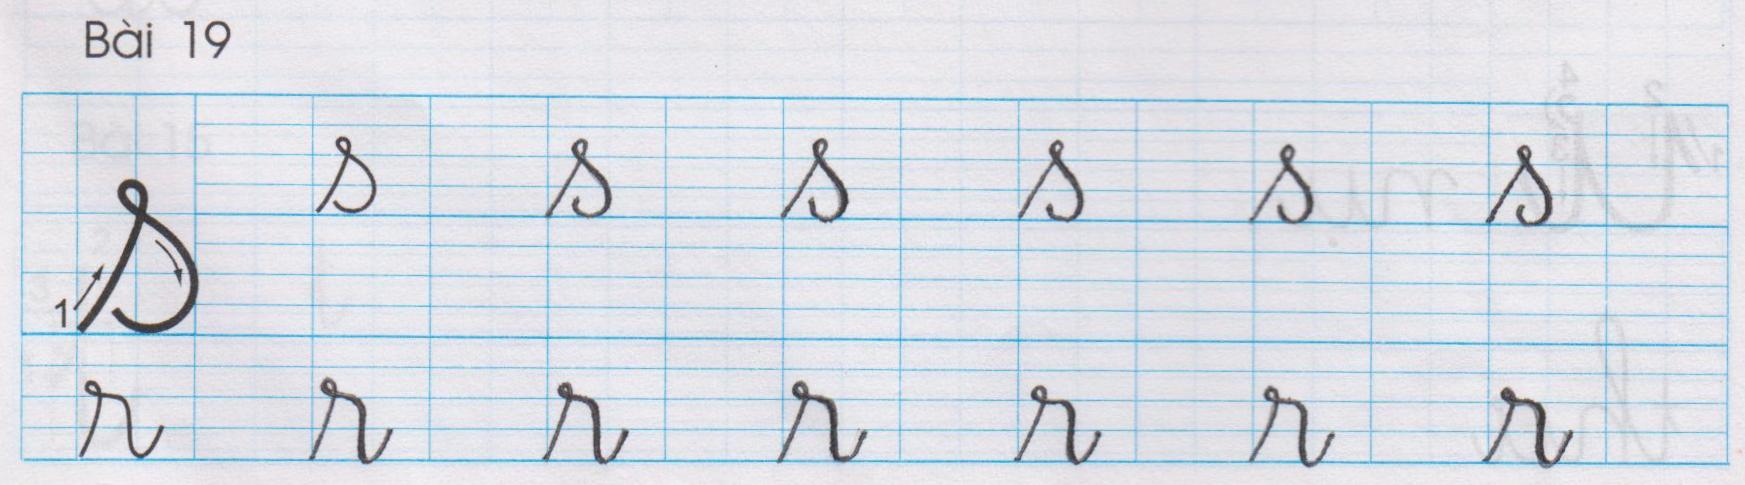 Bài 19
s s s s s s
1 s
r r r r r r r